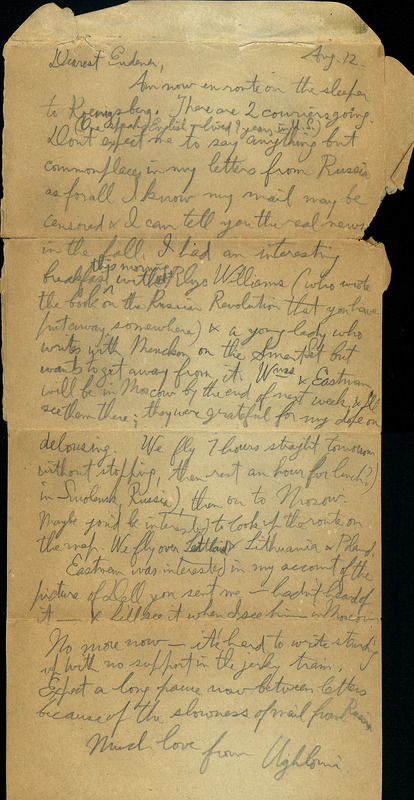 Aug. 12.
Dearest Endener,
Am now en route on the sleeper
to Koenigsberg. There are 2 couriers going.
(One speaks English — lived 9 years in U.S.)
Don't expect me to say anything but
commonplaces in my letters from Russia
as for all I know my mail may be
censored & I can tell you the real news
in the fall. I had an interesting
breakfast this morning with Rhys Williams (who wrote
the book on the Russian Revolution that you have
put away somewhere) & a young lady who
writes with Mencken on the Smart Set but
wants to get away from it. Wms & Eastman
will be in Moscow by the end of next week, & I'll
see them there; they were grateful for my dope on
delousing. We fly 7 hours straight tomorrow
without stopping, then rest an hour for lunch(?)
in Smolensk, Russia), then on to Moscow.
Maybe you'd be interested to look up the route on
the map. We fly over Lithuania & Poland.
Eastman was interested in my account of the
picture of Dell you sent me — hadn't heard of
it — & he'll see it when I see him in Moscow.
No more now — it's hard to write standing
up with no support in the jerky train.
Expect a long pause now between letters
because of the slowness of mail from Russia.
Much love from Ughlomi.